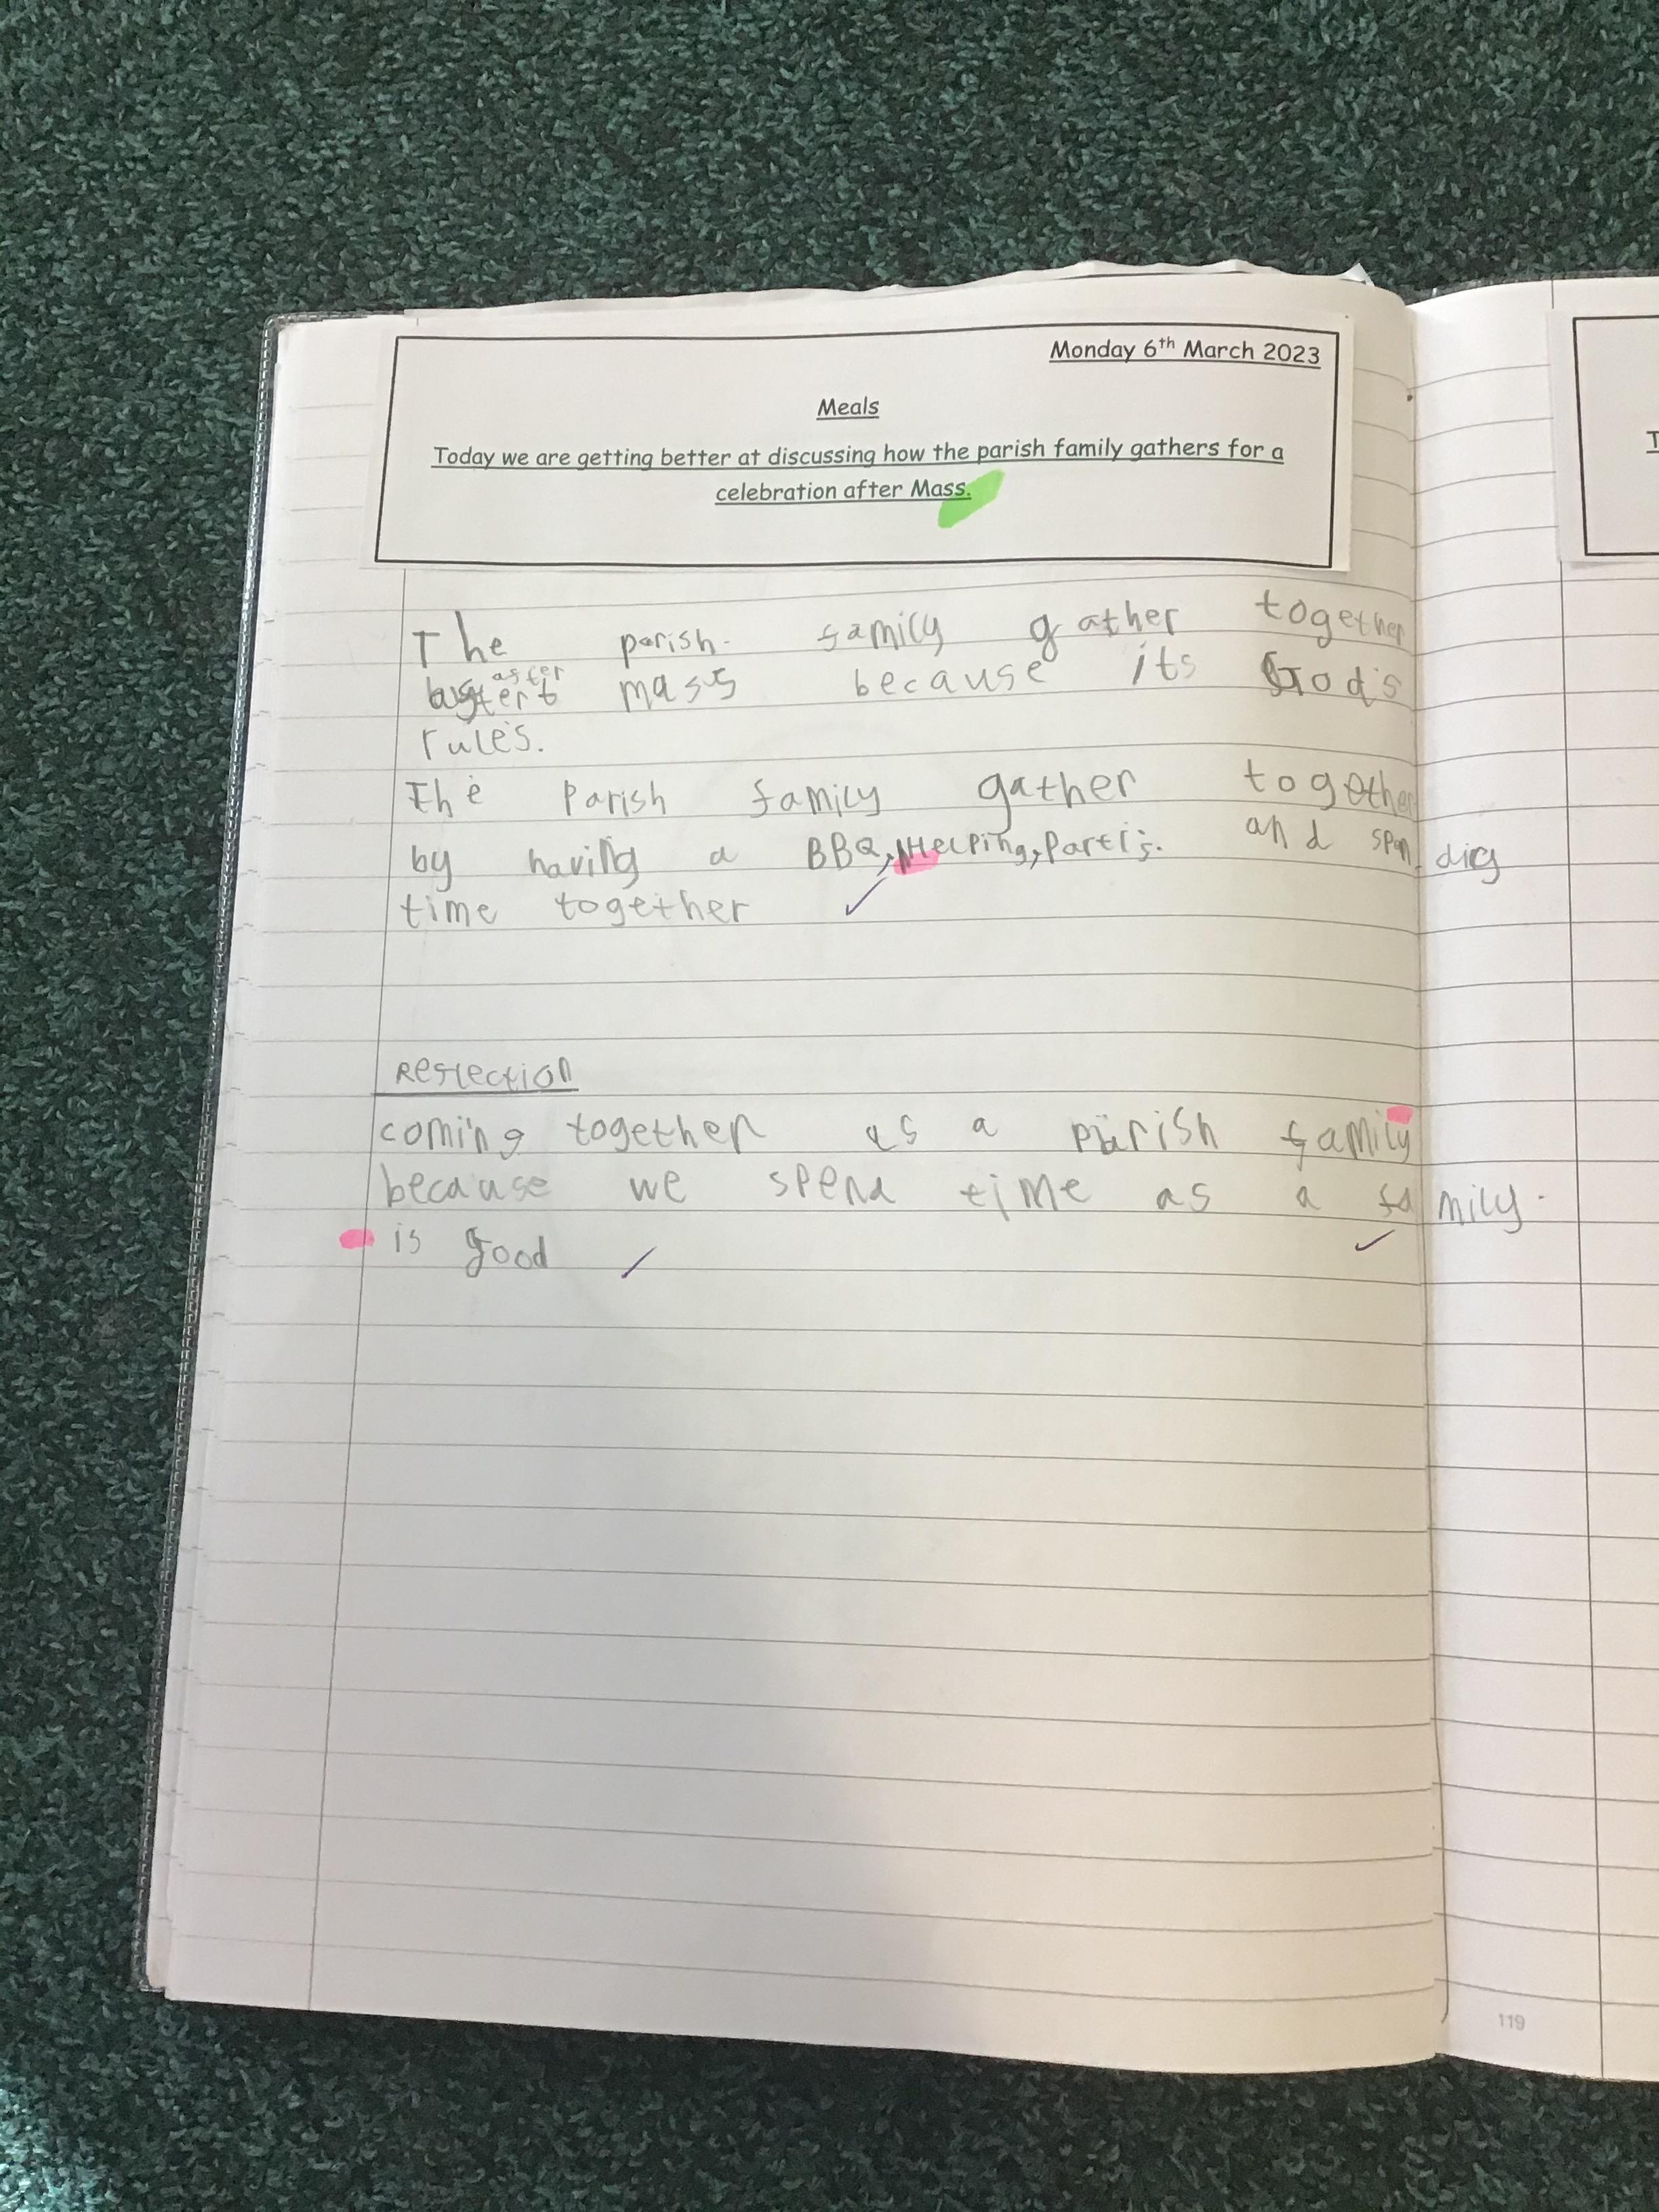 Monday 6th March 2023
Meals
Today we are getting better at discussing how the parish family gathers for a
celebration after Mass.
The parish family gather together
after
mass because its God's
rules.
The Parish family gather together
by having a BBQ, Helping, Partis. and spending
time together
Reflection
coming together as a parish family
because we spend time as a family.
is good
119